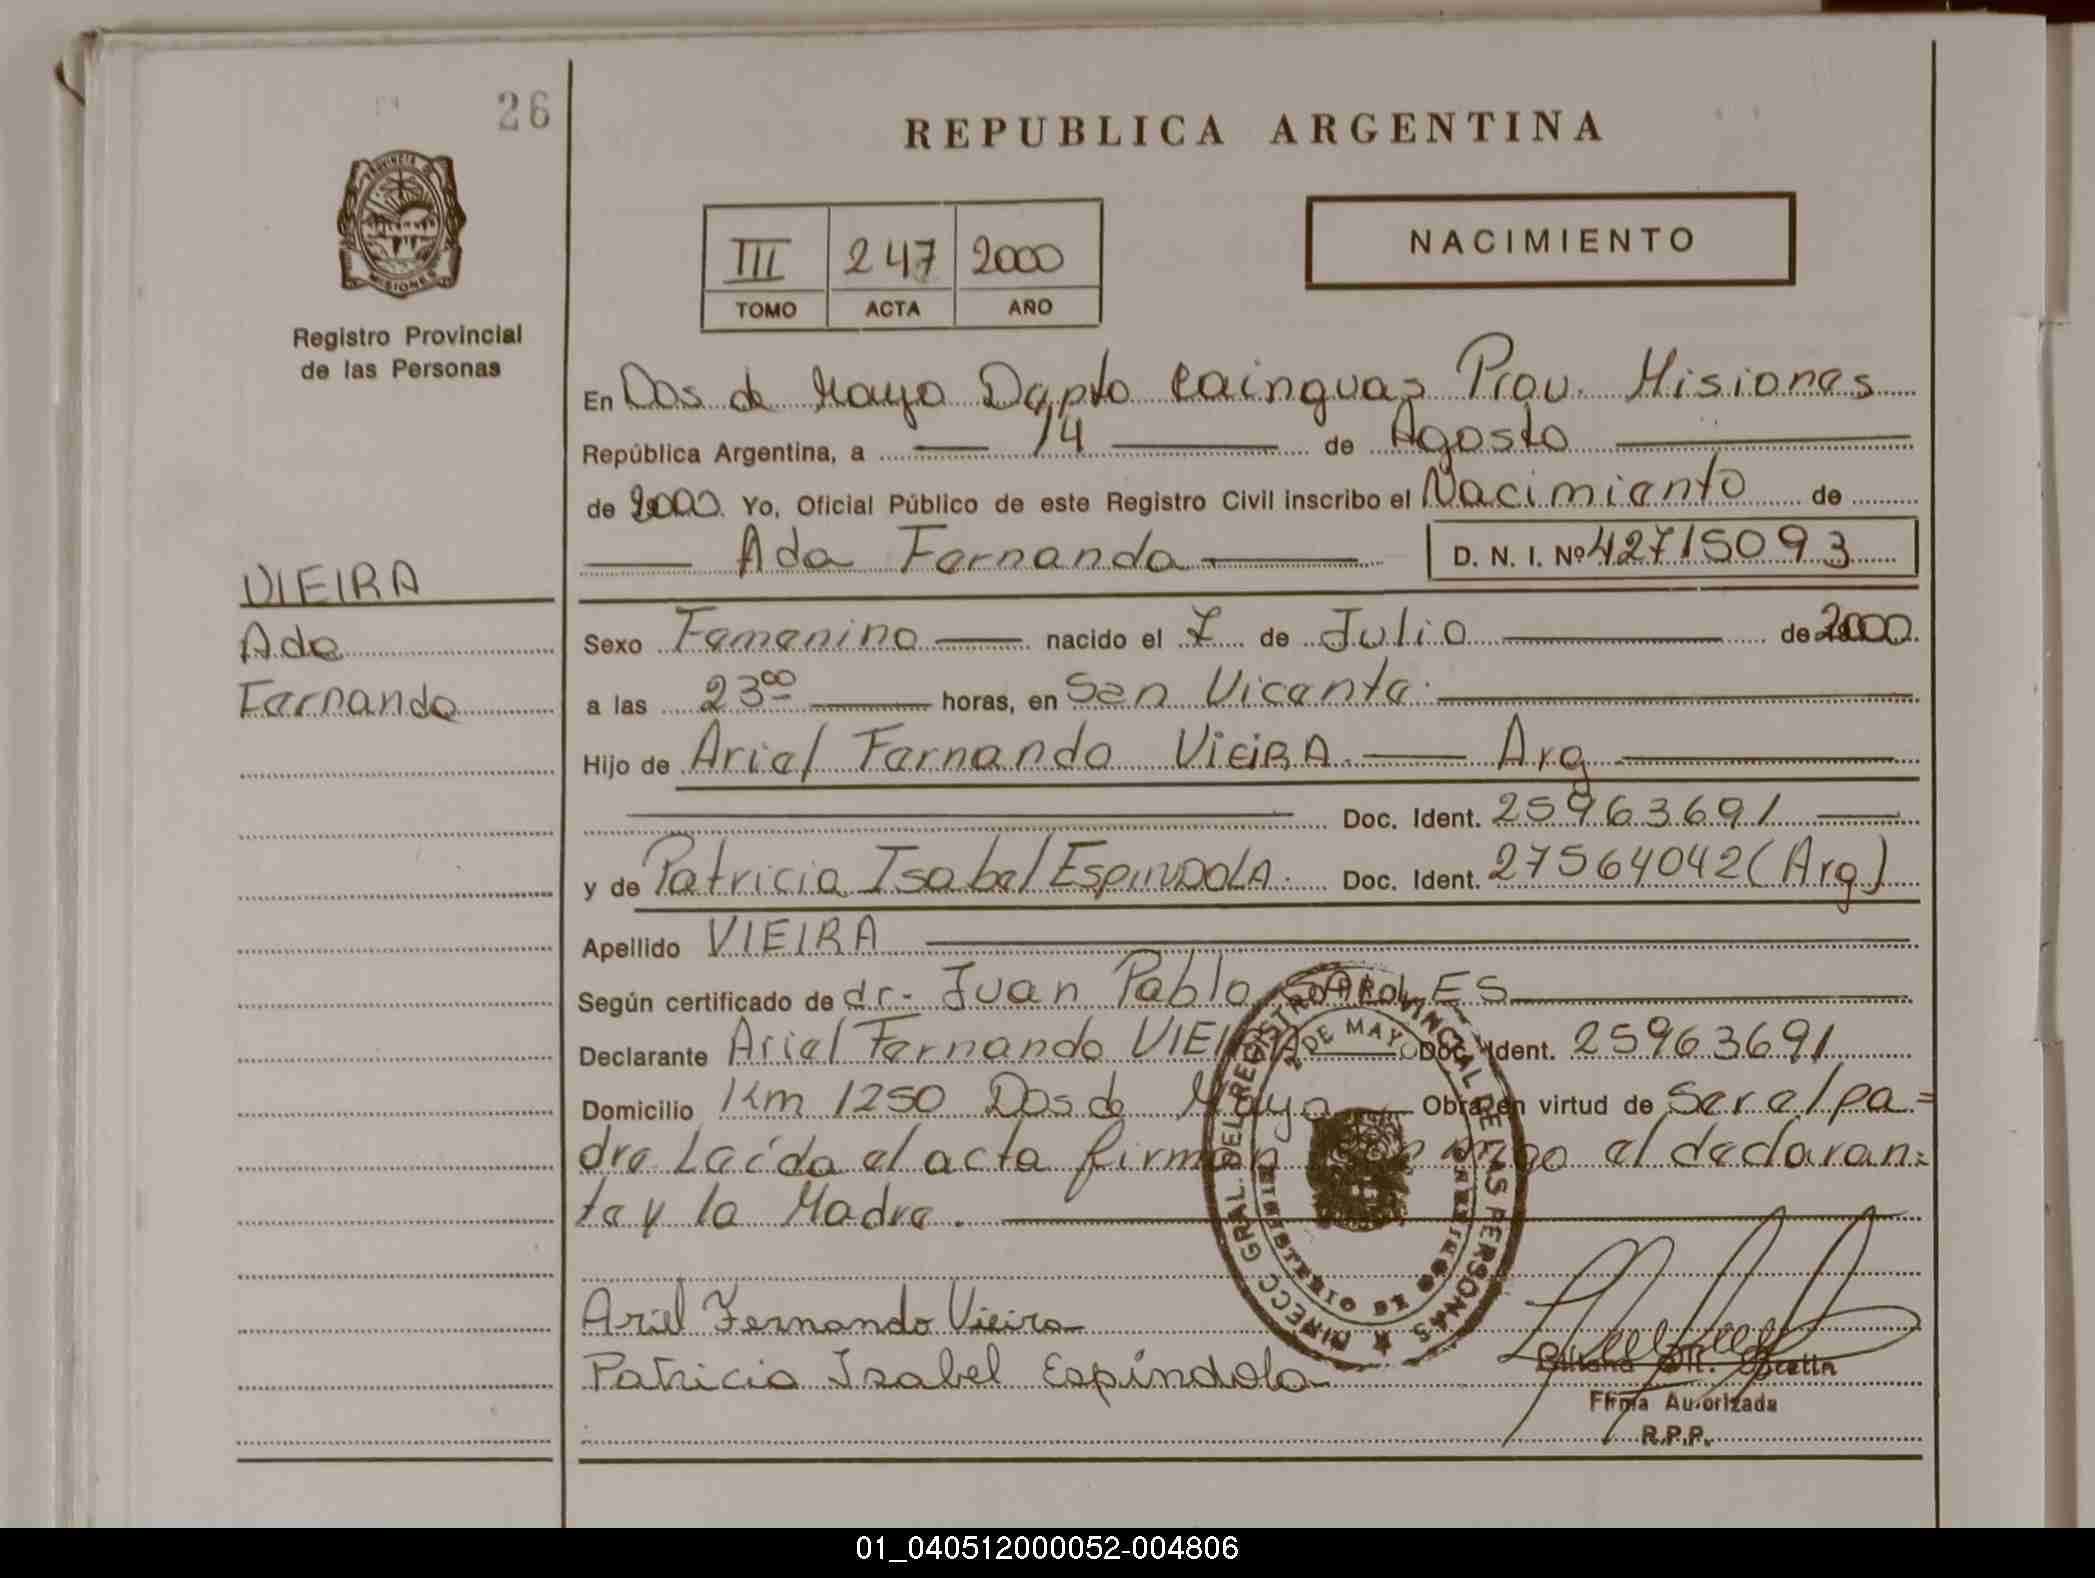 26
REPUBLICA ARGENTINA
PROVINCIA DE MISIONES
Registro Provincial
de las Personas
III 247 2000
TOMO ACTA AÑO
NACIMIENTO
En Dos de Mayo Dapto Cainguas Prov. Misiones
República Argentina, a 14 de Agosto
de 2000 Yo, Oficial Público de este Registro Civil inscribo el Nacimiento de
Ada Fernanda D. N. I. Nº 42715093
VIEIRA
Ada
Fernanda
Sexo Femenino nacido el 7 de Julio de 2000
a las 23 00 horas, en San Vicente.
Hijo de Ariel Fernando VIEIRA. Arg
Doc. Ident. 25963691
y de Patricia Isabel ESPINDOLA. Doc. Ident. 27564042 (Arg)
Apellido VIEIRA
Según certificado de dr. Juan Pablo
Declarante Ariel Fernando VIEIRA Doc. Ident. 25963691
Domicilio Km 1250 Dos de Mayo Obra en virtud de ser el pa=
dre Leída el acta firman conmigo el declaran=
te y la Madre.
DIRECC GRAL. DEL REGISTRO PROVINCIAL DE LAS PERSONAS
2 DE MAYO
MINISTERIO DE
Ariel Fernando Vieira
Patricia Isabel Espíndola
Firma Autorizada
R.P.P.
01_040512000052-004806